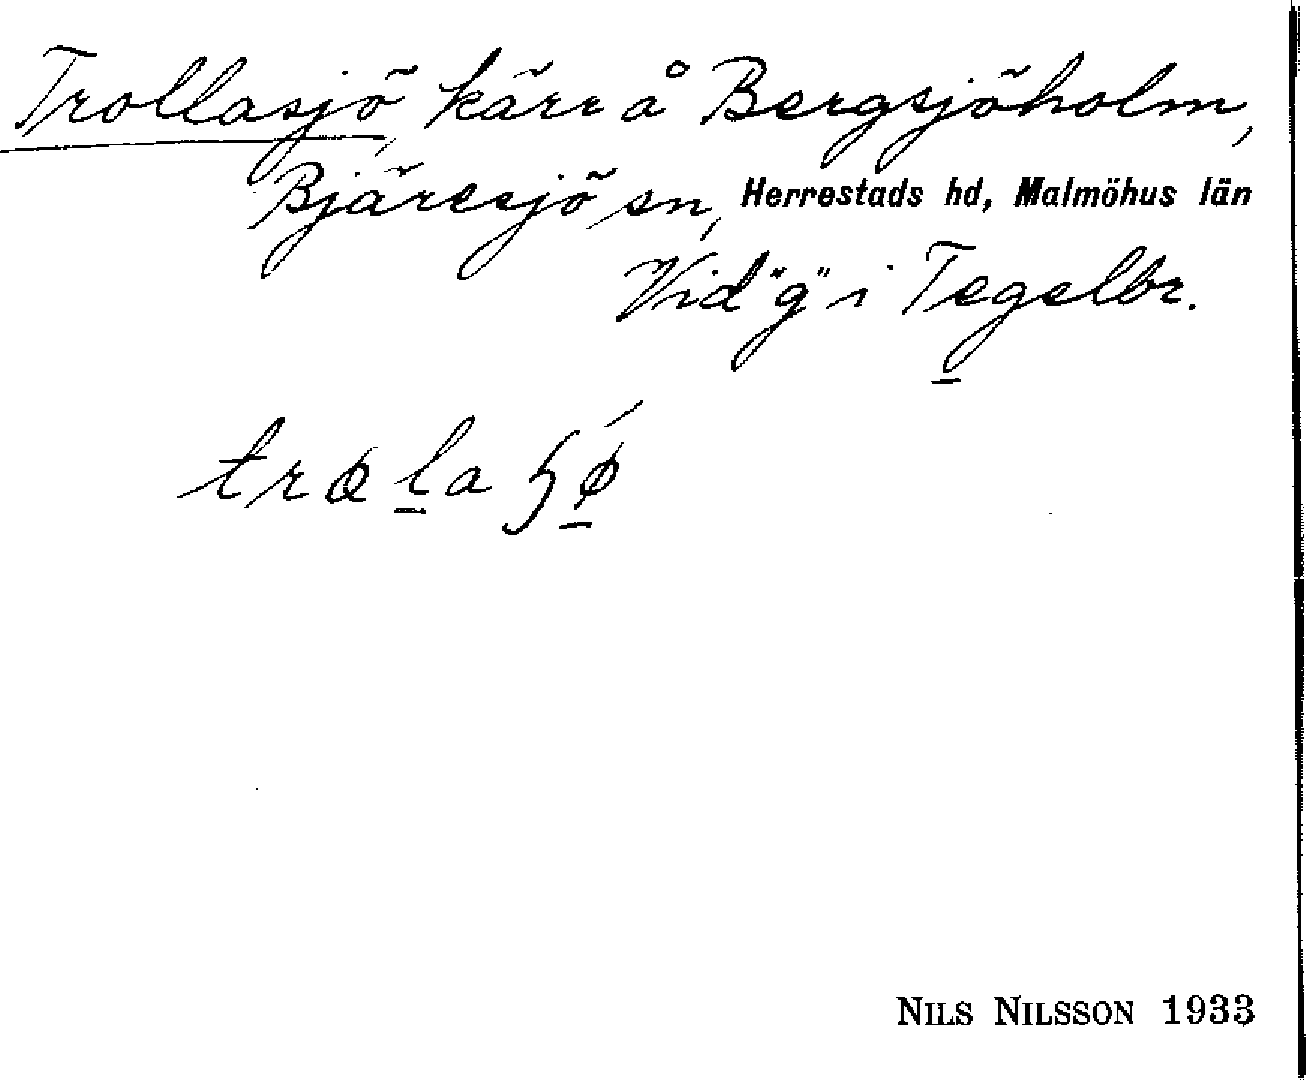 Trollasjö, kärr å Bergsjöholm,
Bjäresjö sn, Herrestads hd, Malmöhus län
Vid "g" i Tegelbr.
NILS NILSSON 1933